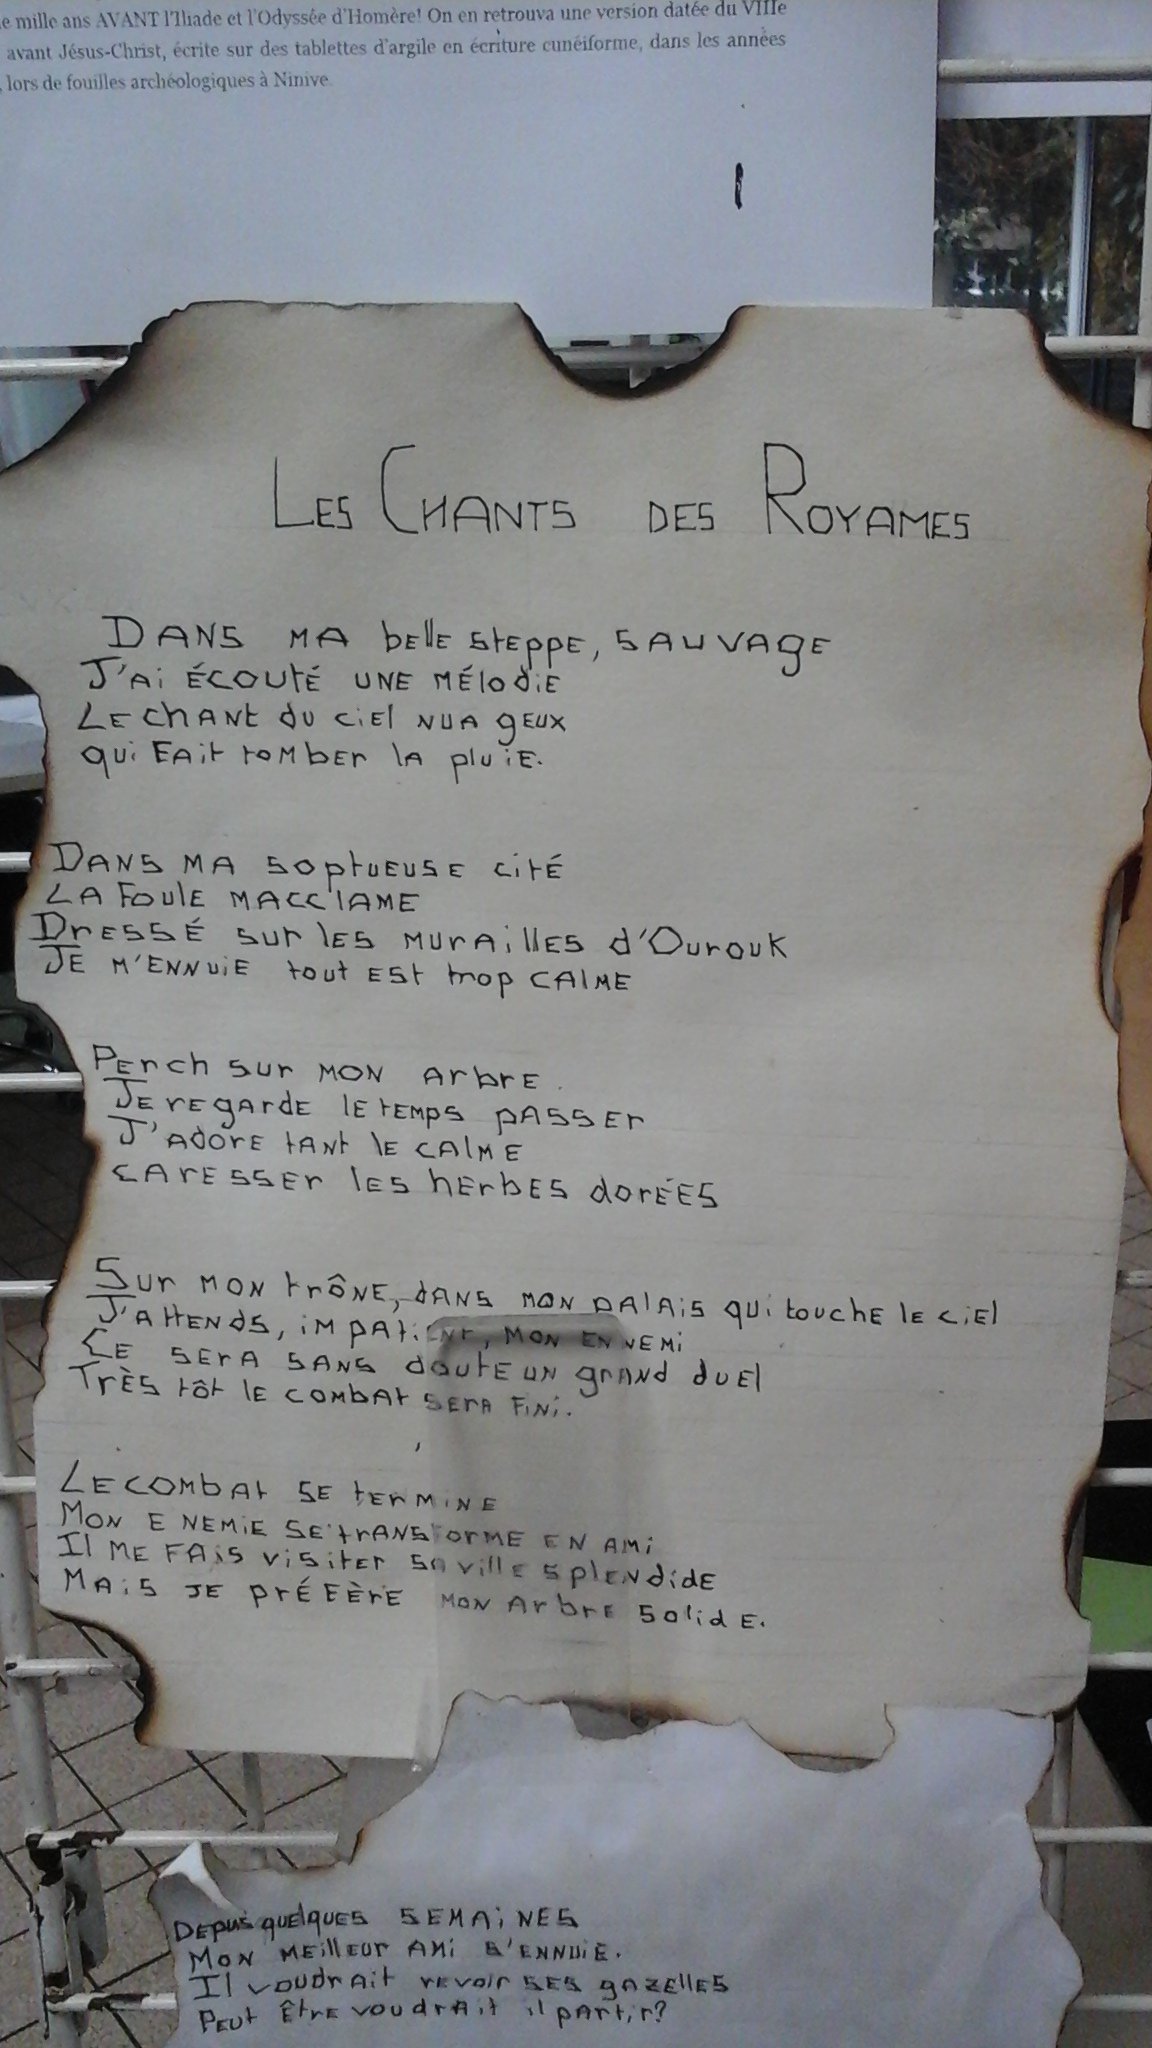 e mille ans AVANT l'Iliade et l'Odyssée d'Homère! On en retrouva une version datée du VIIIe
avant Jésus-Christ, écrite sur des tablettes d'argile en écriture cunéiforme, dans les années
, lors de fouilles archéologiques à Ninive.
LES CHANTS DES ROYAMES
DANS MA bellE stEppE, SAUVAgE
J'Ai ÉCOUtÉ UNE MÉlodiE
LE chANt du ciEl NUAgEUX
qui FAit tOMbEr lA pluiE.
DANS MA SOptUEUSE cité
LA FOUlE MACClAME
DrESSÉ sur lES MUrAillES d'OurouK
JE M'ENNUiE tout ESt trop CAlME
PErch sur MON Arbre.
JE rEgArdE lE tEMps pASSEr
J'AdOrE tANt lE CAlME
CArESSEr lES hErbES dorÉES
Sur MON trÔNE, dANS MON pAlAiS qui touchE lE ciEl
J'AttENds, iMpAtiENt, MON ENNEMi
CE SErA SANS doutE UN grANd duEl
Très tôt lE COMbAt SErA Fini.
LE COMbAt SE tErMiNE
MON ENEMiE SE trANSfOrME EN AMi
Il ME FAiS visitEr SA villE SplENdidE
MAiS JE prÉFÈrE MON ArbrE SOlidE.
DEpuis quElquES SEMAiNES
MON MEillEUr AMi S'ENNUiE.
Il voudrAit rEvoir SES gAZEllES
PEUt ÊtrE voudrAit il pArtir?